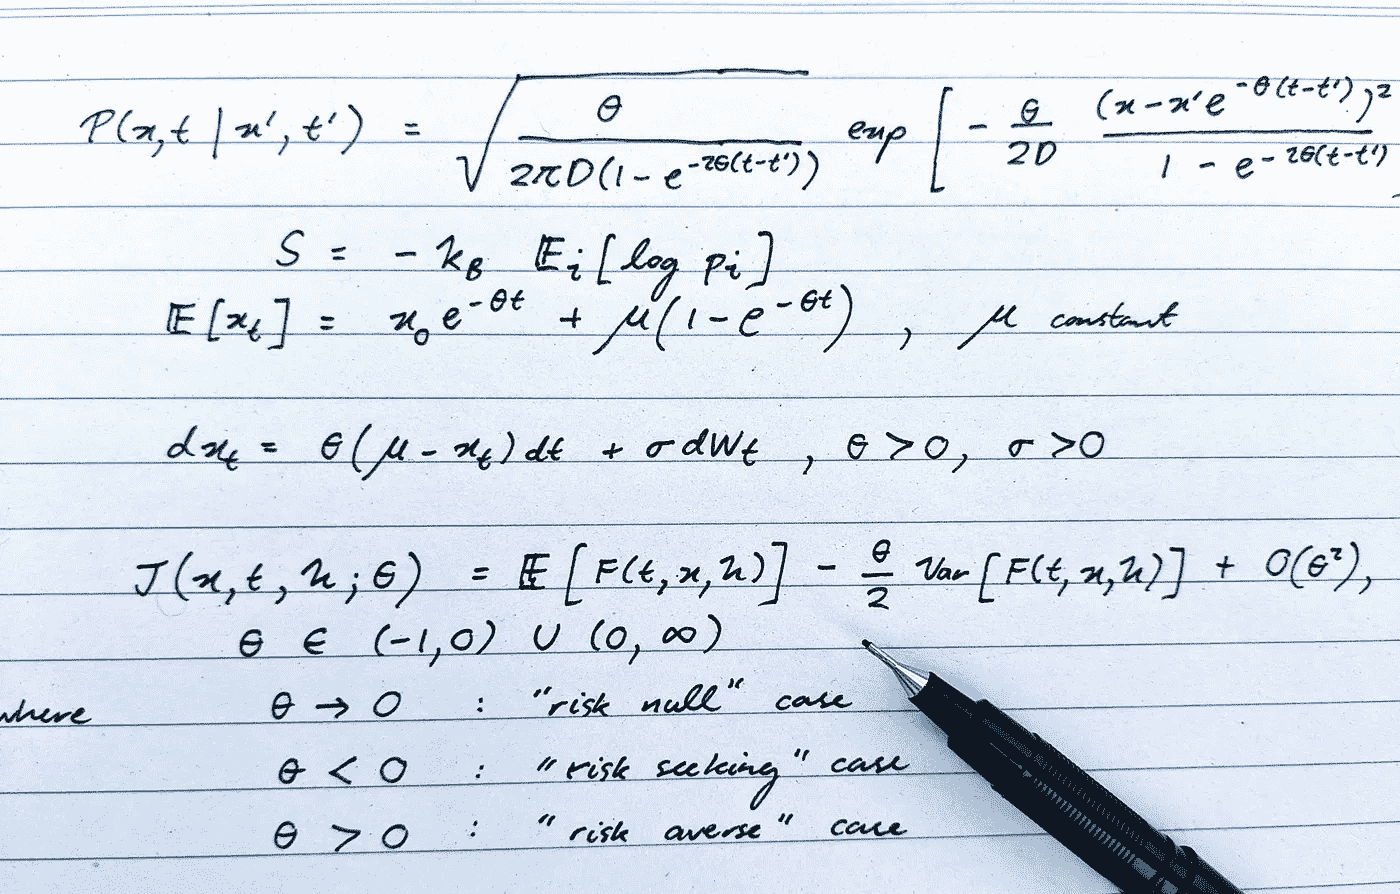 P(x,t | x',t') = √(θ / 2πD(1 - e^{-2θ(t-t')})) exp [ - θ/2D (x - x'e^{-θ(t-t')})² / 1 - e^{-2θ(t-t')}
S = - k_B 𝔼_i [log p_i]
𝔼[x_t] = x_0 e^{-θt} + μ(1 - e^{-θt}) , μ constant
dx_t = θ(μ - x_t)dt + σ dW_t , θ > 0, σ > 0
J(x,t,h;θ) = 𝔼[F(t,x,h)] - θ/2 Var[F(t,x,h)] + O(θ²),
θ ∈ (-1,0) ∪ (0,∞)
where θ → 0 : "risk null" case
θ < 0 : "risk seeking" case
θ > 0 : "risk averse" case